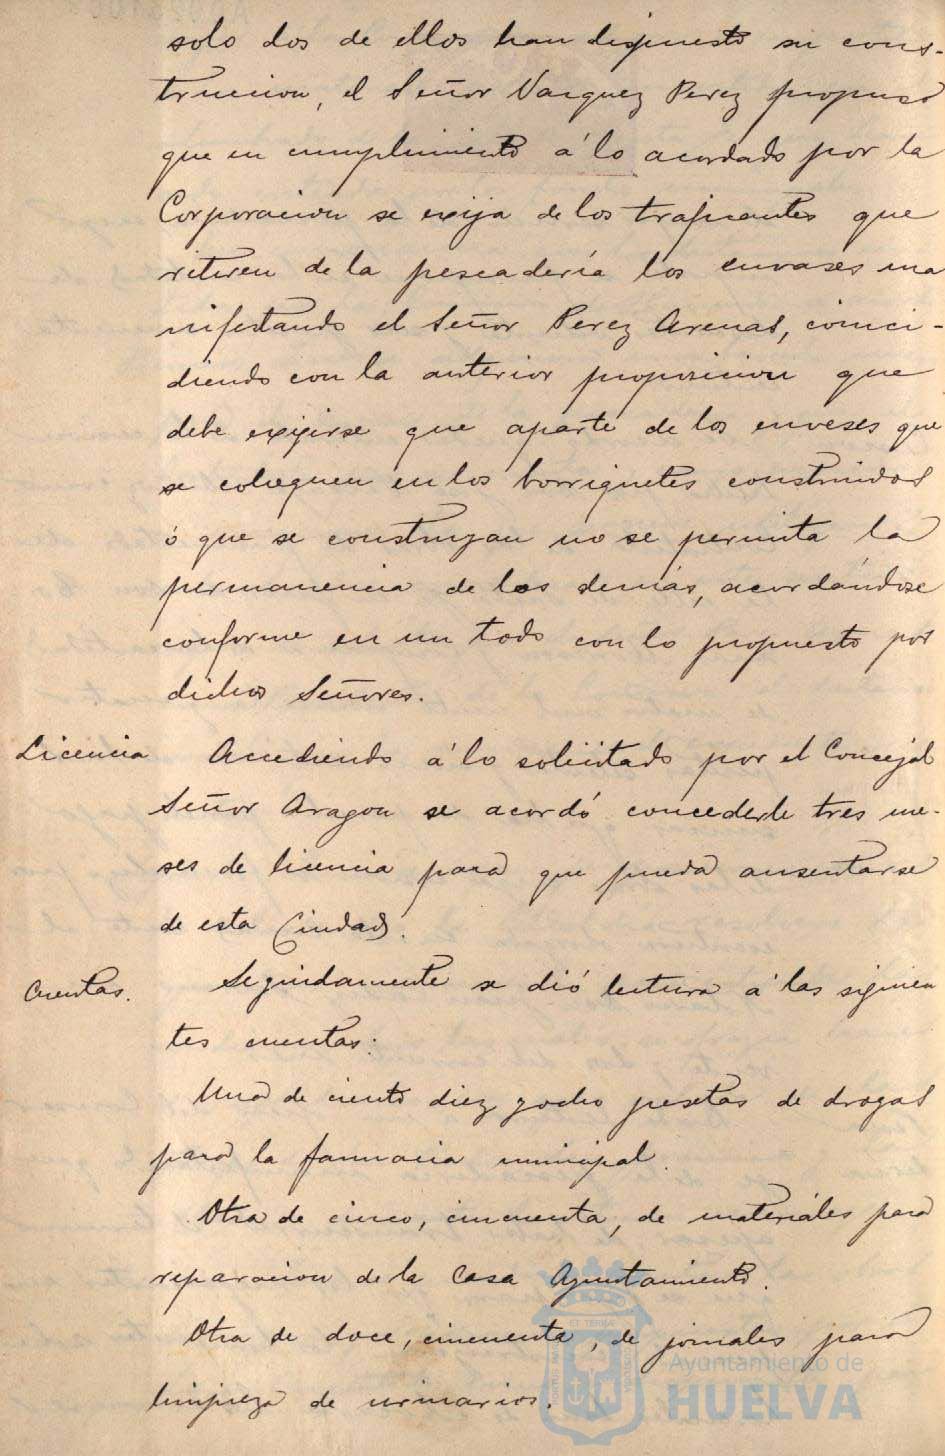 solo dos de ellos han dispuesto su cons-
trucion, el Señor Vazquez Perez propuso
que en cumplimiento á lo acordado por la
Corporacion se exija de los traficantes que
retiren de la pescadería los envases ma
nifestando el Señor Perez Arenas, coinci-
diendo con la anterior proposicion que
debe exijirse que aparte de los enveses que
se coloquen en los borriquetes construidos
ó que se construyan no se permita la
permanencia de los demás, acordándose
conforme en un todo con lo propuesto por
dichos Señores.
Licencia Accediendo á lo solicitado por el Concejal
Señor Aragon se acordó concederle tres me-
ses de licencia para que pueda ausentarse
de esta Ciudad.
Cuentas. Seguidamente se dió lectura á las siguien
tes cuentas:
Una de ciento diez y ocho pesetas de drogas
para la farmacia municipal.
Otra de cinco, cincuenta, de materiales para
reparacion de la Casa Ayuntamiento.
Otra de doce, cincuenta, de jornales para
limpieza de urinarios.
Ayuntamiento de
HUELVA